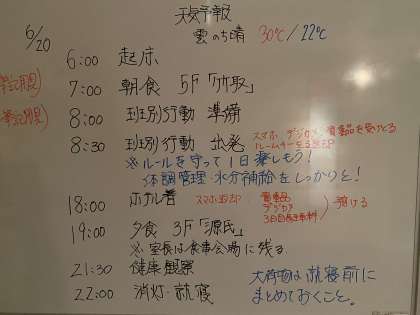 天気予報
6/20 雲のち晴 30℃/22℃
6:00 起床
7:00 朝食 5F「竹取」
8:00 班別行動 準備
8:30 班別行動 出発
スマホ デジカメ 貴重品を受けとる
ルームキーを
※ルールを守って1日楽しもう!
体調管理・水分補給をしっかりと!
18:00 ホテル着
スマホ 貴重品
デジカメ 預ける
3日目
19:00 夕食 3F「源氏」
※室長は食事会場に残る
21:30 健康観察
22:00 消灯・就寝
大荷物は就寝前に
まとめておくこと。